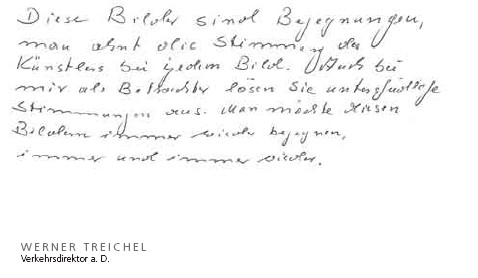 Diese Bilder sind Begegnungen,
man ahnt die Stimmung des
Künstlers bei jedem Bild. Auch bei
mir als Betrachter lösen Sie unterschiedliche
Stimmungen aus. Man möchte diesen
Bildern immer wieder begegnen,
immer und immer wieder.
WERNER TREICHEL
Verkehrsdirektor a. D.